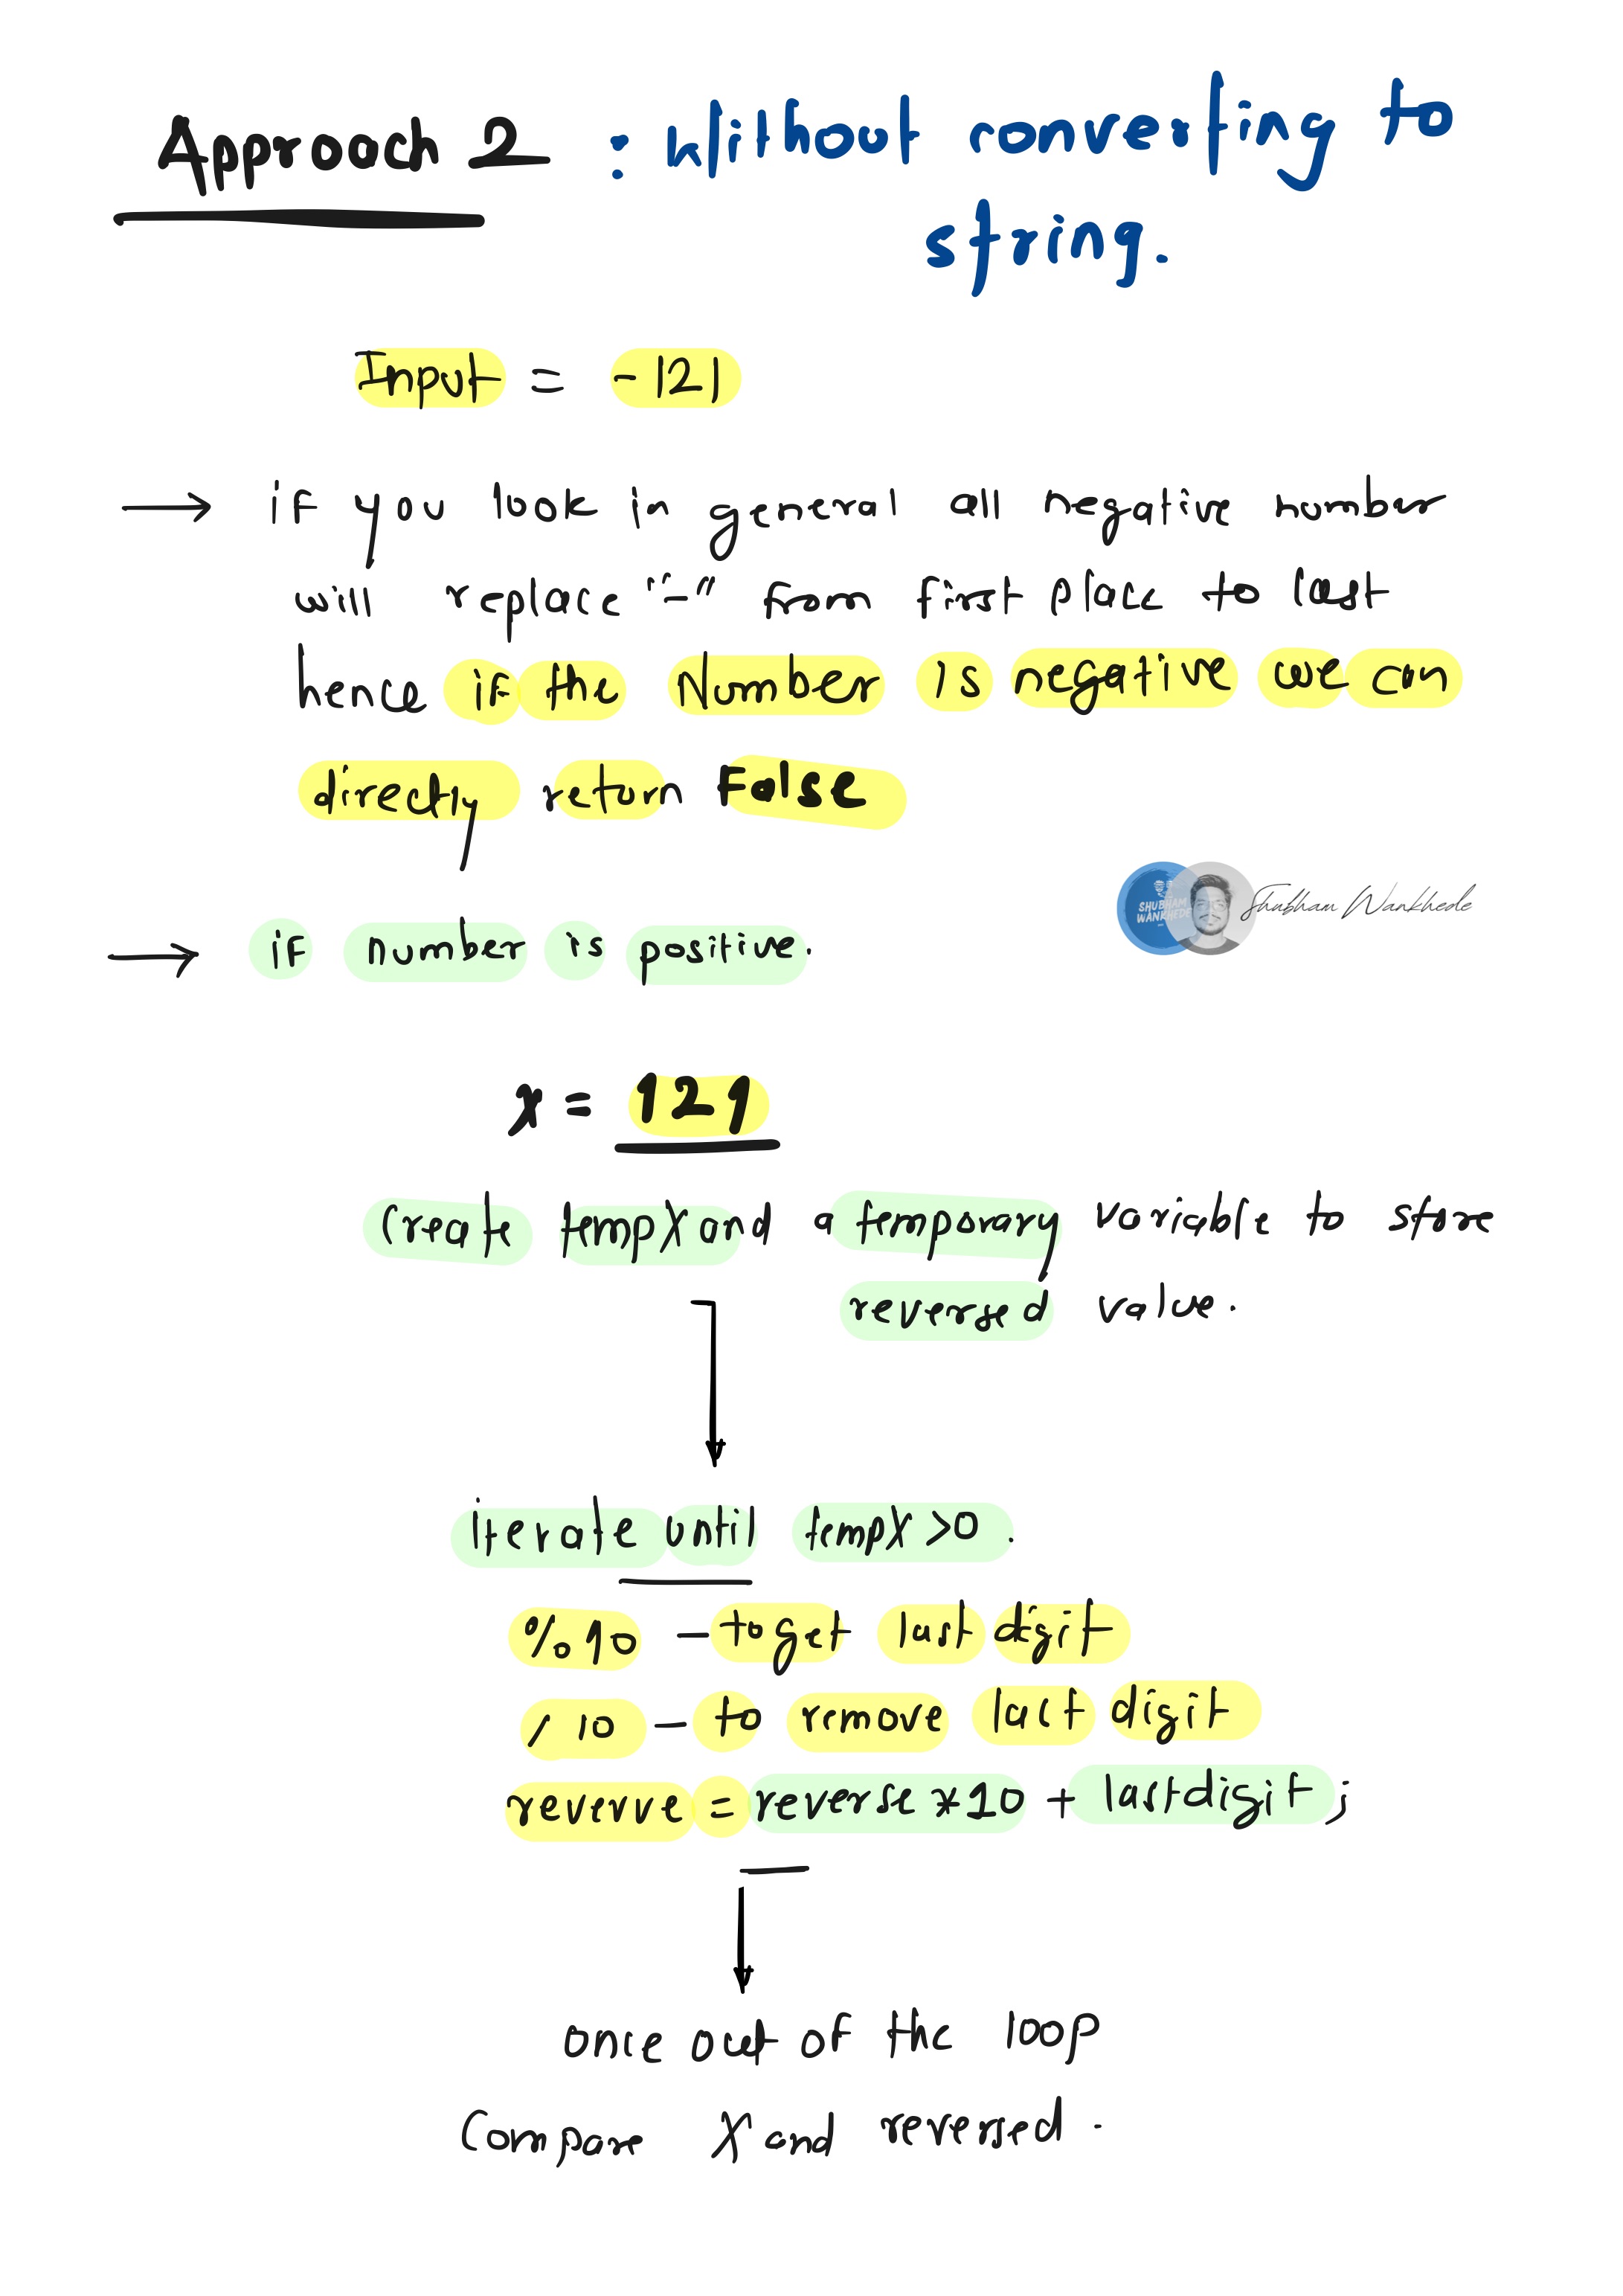 Approach 2 : Without converting to
string.
Input = -121
→ if you look in general all negative number
will replace "-" from first place to last
hence if the Number is negative we can
directly return False
SHUBHAM
WANKHEDE
Shubham Wankhede
→ if number is positive.
x = 121
Create tempX and a temporary variable to store
reversed value.
iterate until tempX >0.
% 10 - to get last digit
/ 10 - to remove last digit
reverve = reverse *10 + lastdigit;
once out of the loop
Compare X and reversed.